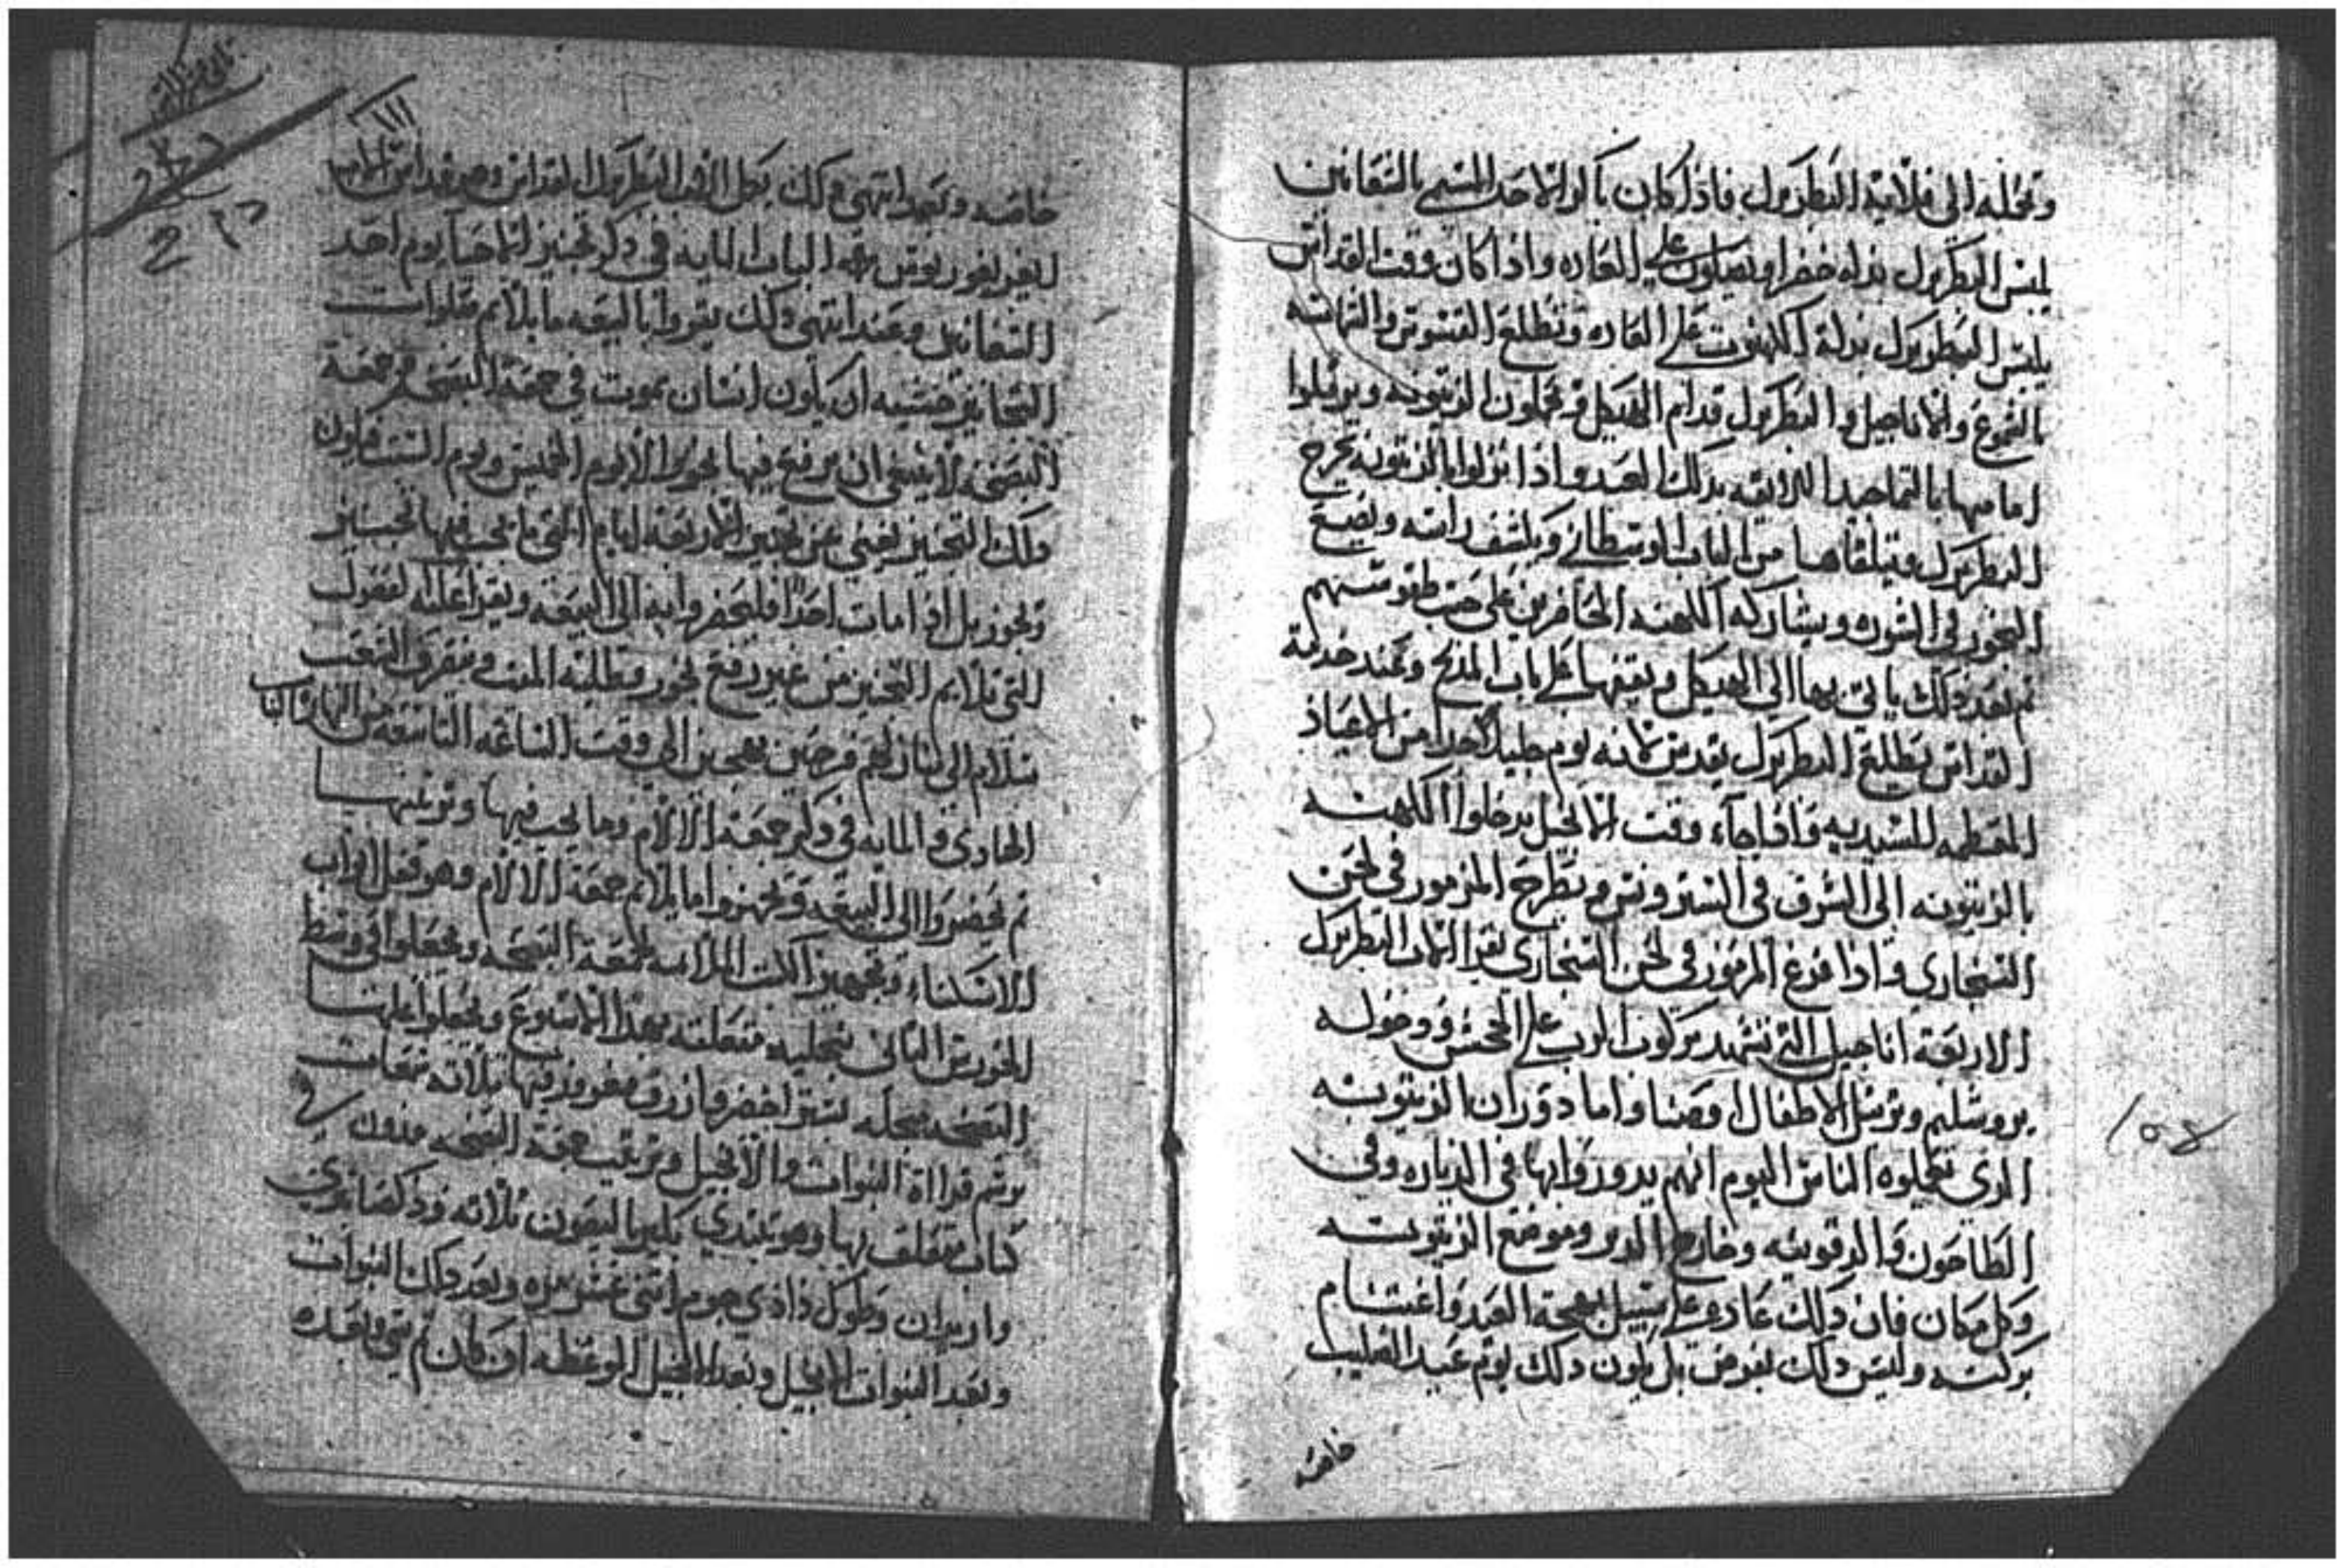 وتحمله الى قلاية البطريرك فاذا كان باكر الاحد المسمى بالشعانين
يلبس البطريرك بدله خضرا ويصلون على العاده واذا كان وقت القداس
يلبس البطريرك بدلة الكهنوت على العاده وتطلع القسوس والشمامسه
بالشموع والاناجيل والبطريرك قدام الهيكل ويحملون الزيتونه ويرتلوا
امامها بالتماجيد اللايقه بذلك العيد واذا نزلوا بالزيتونه يخرج
البطريرك ويتلقاها من الباب الاوسطاني ويكشف راسه ويضع
البخور في الشوريه ويشاركه الكهنه الحاضرين على حسب طقوسهم
ثم بعد ذلك ياتي بها الى الهيكل ويقيمها على باب المذبح وعند خدمة
القداس يطلع البطريرك يقدس لانه يوم جليل احدا من الاعياد
المعظمه للسيديه واذا جاء وقت الانجيل يدخلوا الكهنه
بالزيتونه الى الشرق في السنترونس ويطرح المزمور في لحن
السنجاري واذا فرغ المزمور في لحن السنجاري يقرا الاب البطريرك
الاربعة اناجيل التي تشهد بركوب الرب على الجحش ودخوله
يروشليم وترتيل الاطفال اوصنا واما دوران الزيتونه
الذي تعملوه الناس اليوم انهم يدوروا بها في الدياره وفي
الطاحون والدقونيه وخارج الدير وموضع الزيتونه
وكل مكان فان ذلك عاده على سبيل بهجة العيد واغتنام
بركته وليس ذلك بفرض بل يكون ذلك يوم عيد الصليب
خاصه
١٥٤
ثاني عشر كراس
١١١
خاصه وبعد انتهى ذلك يكمل الاب البطريرك القداس وصرفه
لغريغوريوس الباب المايه في ذكر تجنيز الاحيا يوم احد
الشعانين وعند انتهى ذلك يقروا بالبيعه ما يلايم صلوات
التجانيز خشيه ان يكون انسان يموت في جمعة البصخه وجمعة
البصخه لا ينبغي ان يرفع فيها بخور الا يوم الخميس ويوم السبت ويكون
ذلك التجنيز يغني عن تجنيز الاربعة ايام التي ما يجب فيها تجنيز
وبخور بل اذا مات احدا فليحضروا به الى البيعه ويقرا عليه الفصول
التي تلايم التجنيز من غير رفع بخور وطلبة الميت وينصرف الشعب
بسلام الى منازلهم فرحين بهجين الى وقت الساعه التاسعه من النهار الباب
الحادي والمايه في ذكر جمعة الالام وما يجب فيها وترتيبها
ثم يحضروا الى البيعه ويجهزوا ما يلايم جمعة الالام وهو قفل ابواب
الاسكنا وتجهيز الات الملايمه لجمعة البصخه ويجعلوا في وسط
الخورس الثاني منجليه متعلقه بهذا الاسبوع ويجعلوا عليها
البصخه منجليه بستر اخضر وازرق ومغروز فيها ثلاثه شمعات
برسم قراءة النبوات والانجيل وترتيب جمعة البصخه مدون في
كتاب متعلق بها وهو يبتدي بكيرياليصون ثلاثه وذكصابتري
واربون وطوك ذاذي جوم اثني عشر مره وبعد ذلك النبوات
وبعد النبوات الانجيل وبعد الانجيل الوعظه ان كان ثم شي وبعده